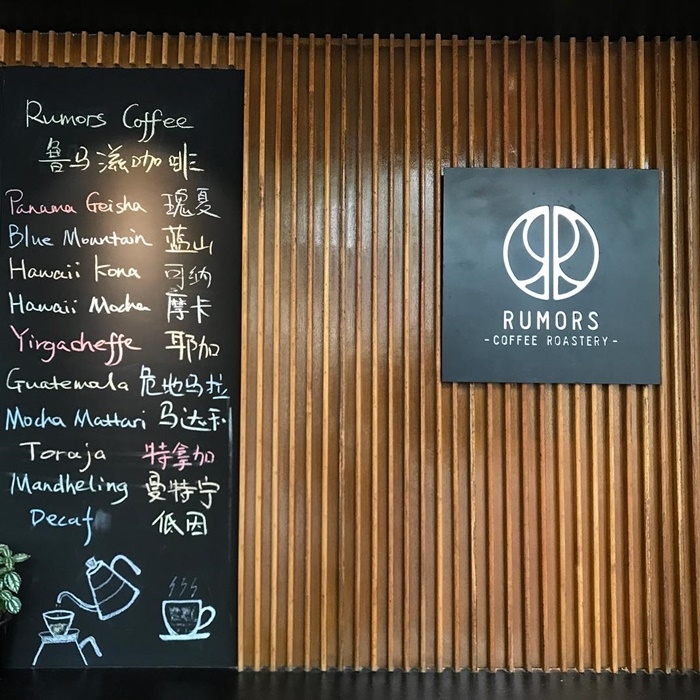 Rumors Coffee
鲁马滋咖啡
Panama Geisha 瑰夏
Blue Mountain 蓝山
Hawaii Kona 可纳
Hawaii Mocha 摩卡
Yirgacheffe 耶加
Guatemala 危地马拉
Mocha Mattari 马达利
Toraja 特拿加
Mandheling 曼特宁
Decaf 低因
RUMORS
-COFFEE ROASTERY-